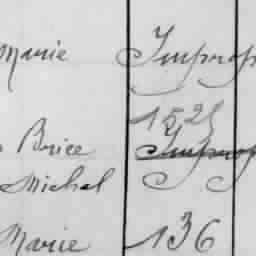 Marie Improp
1528
Brice Improp
Michel
Marie 136